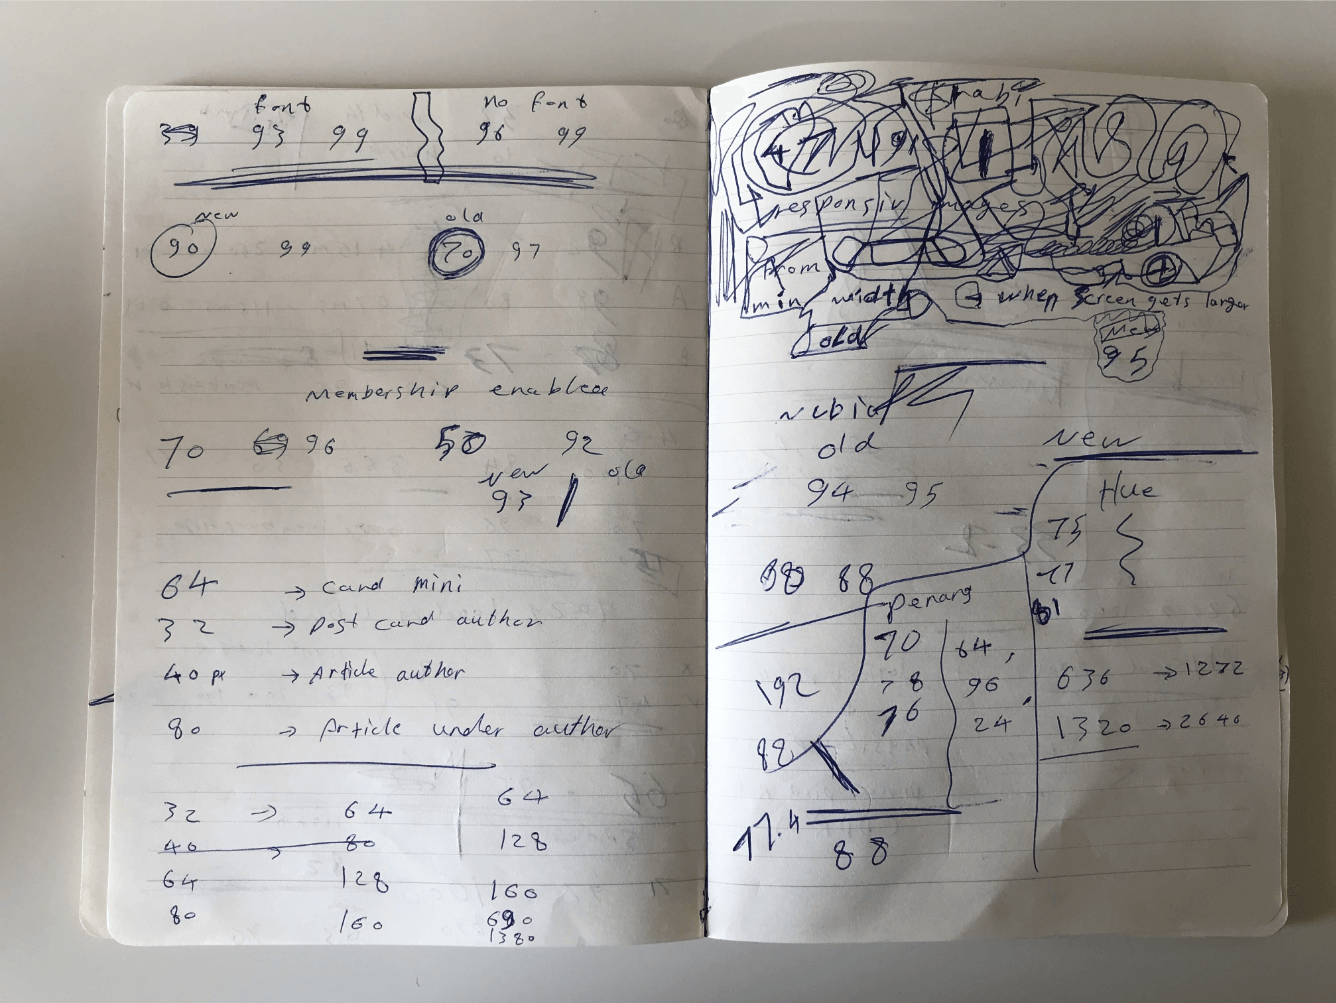 font no font
93 99 96 99
new old
90 99 70 97
Membership enabled
70 96 50 92
new old
93
64 → card mini
32 → post card author
40 px → Article author
80 → Article under author
32 → 64 64
40 → 80 128
64 128 160
80 160 690
1380
responsiv images
from
min width → when screen gets larger
old
New
95
old
94 95
88
192
82
77.4
88
penang
70 64,
78 96
76 24
New
Hue
75
77
81
636 → 1272
1320 → 2640